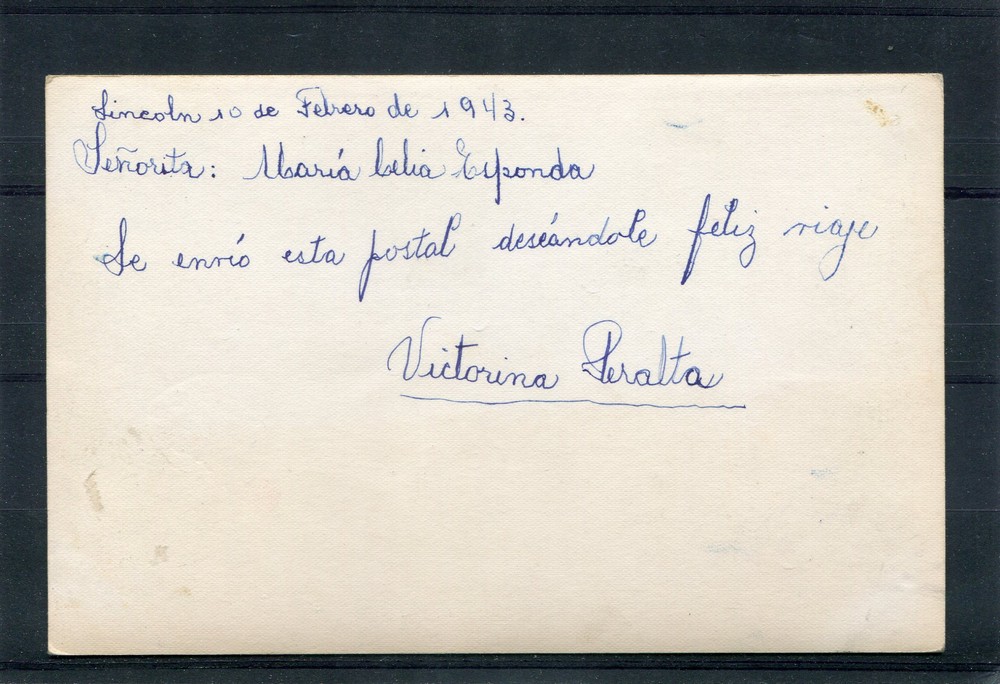 Lincoln 10 de Febrero de 1943.
Señorita: María Celia Esponda
Le envió esta postal deseándole feliz viaje
Victorina Peralta